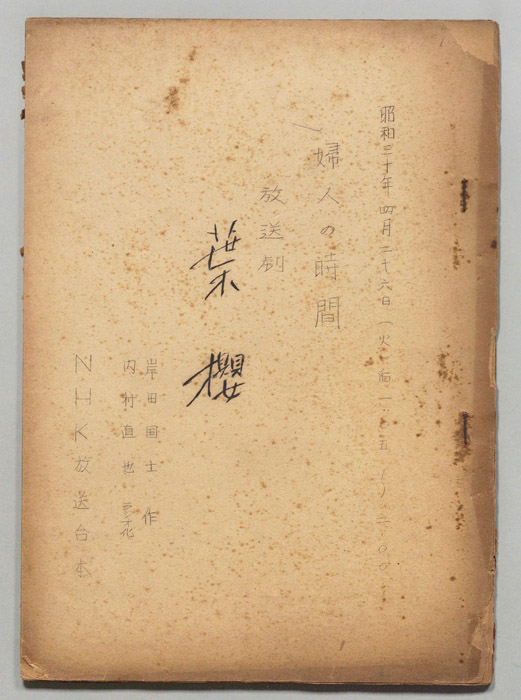 昭和三十年四月二十六日(火)后一.一五(〜)二.〇〇
婦人の時間
放送劇
葉櫻
岸田国士 作
内村直也 ラジオ化
NHK放送台本